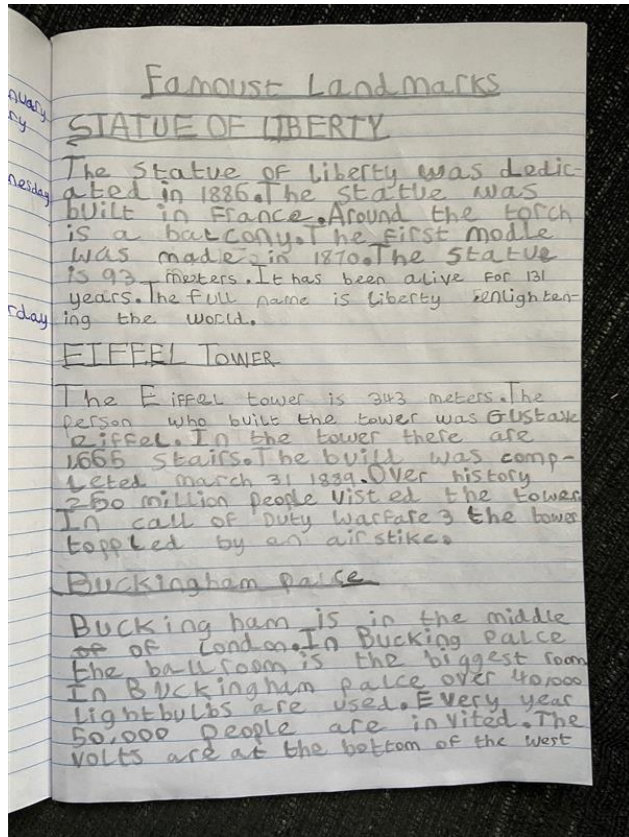 Famoust Landmarks
STATUE OF LIBERTY
The Statue of Liberty was dedic-
ated in 1886. The statue was
built in France. Around the torch
is a balcony. The first modle
was made in 1870. The Statue
is 93 meters. It has been alive for 131
years. The full name is liberty enlighten-
ing the world.
EIFFEL TOWER
The Eiffel tower is 343 meters. The
person who built the tower was Gustave
eiffel. In the tower there are
1,665 stairs. The build was comp-
leted march 31 1889. Over history
250 million people visted the tower
In call of Duty Warfare 3 the tower
toppled by an airstike.
Buckingham palce
Bucking ham is in the middle
of of London. In Bucking palce
the ballroom is the biggest room
In Buckingham palce over 40,000
lightbulbs are used. Every year
50,000 people are invited. The
volts are at the bottom of the west
nuary
ry
nesday
rday